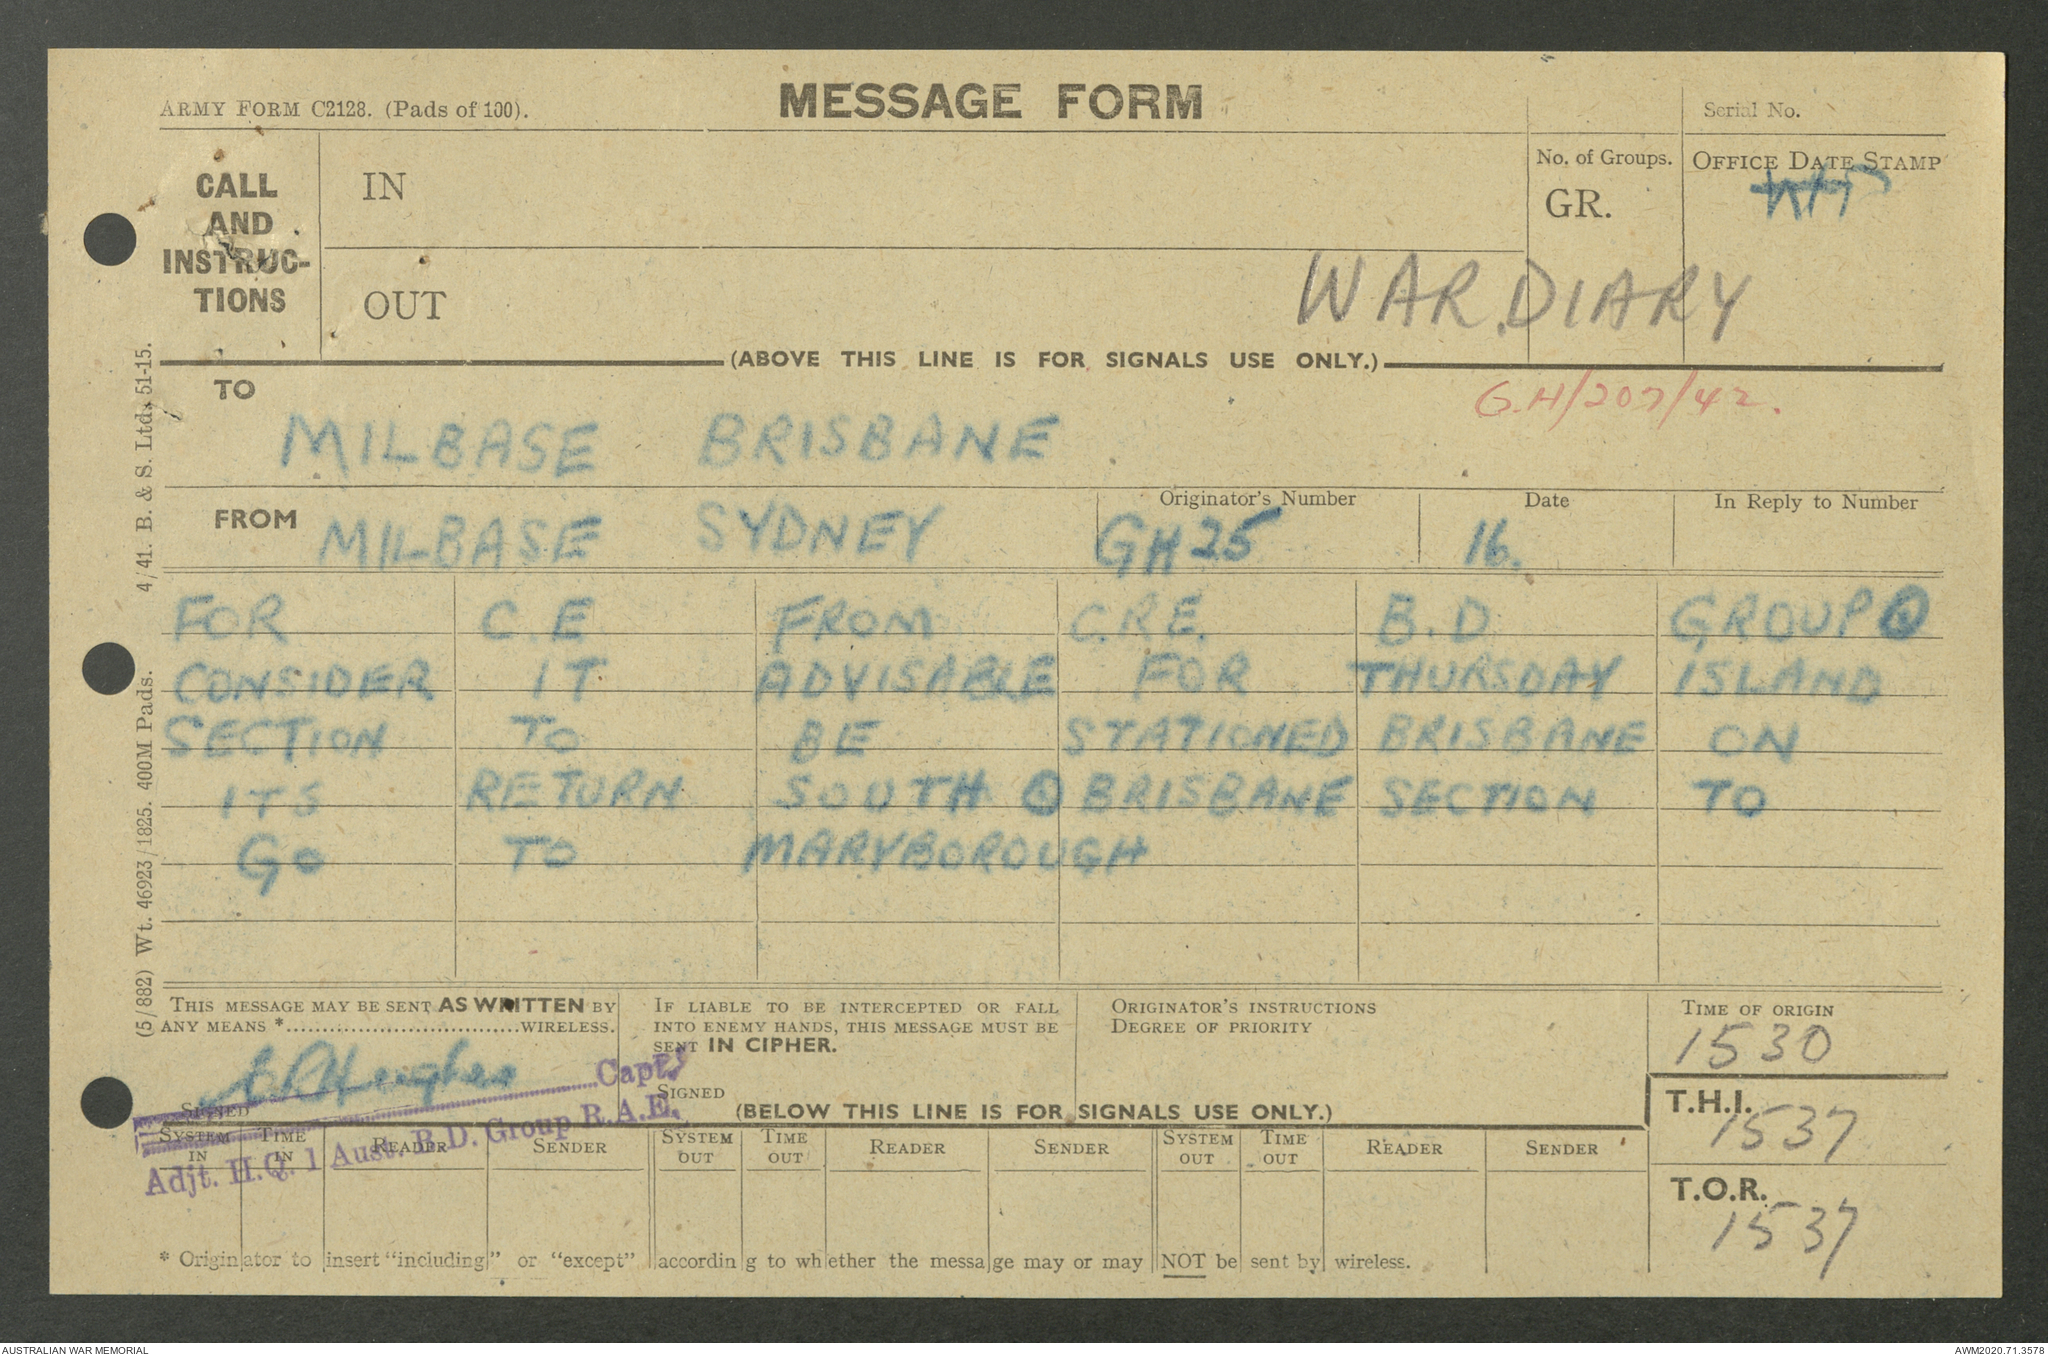 ARMY FORM C2128. (Pads of 100).
MESSAGE FORM
Serial No.
CALL AND INSTRUC-TIONS
IN
No. of Groups.
GR.
OFFICE DATE STAMP
OUT
WAR. DIARY
(ABOVE THIS LINE IS FOR SIGNALS USE ONLY.)
TO
G.H/207/42.
MILBASE BRISBANE
FROM MILBASE SYDNEY
Originator's Number
GH 25
Date
16.
In Reply to Number
FOR C.E FROM C.R.E. B.D GROUP
CONSIDER IT ADVISABLE FOR THURSDAY ISLAND
SECTION TO BE STATIONED BRISBANE ON
ITS RETURN SOUTH BRISBANE SECTION TO
GO TO MARYBOROUGH
THIS MESSAGE MAY BE SENT AS WRITTEN BY
ANY MEANS *..............................WIRELESS.
SIGNED
IF LIABLE TO BE INTERCEPTED OR FALL
INTO ENEMY HANDS, THIS MESSAGE MUST BE
SENT IN CIPHER.
SIGNED
ORIGINATOR'S INSTRUCTIONS
DEGREE OF PRIORITY
TIME OF ORIGIN
1530
Capt.
Adjt. H.Q. 1 Aust. B.D. Group R.A.E.
(BELOW THIS LINE IS FOR SIGNALS USE ONLY.)
T.H.I.
1537
SYSTEM IN TIME IN READER SENDER SYSTEM OUT TIME OUT READER SENDER SYSTEM OUT TIME OUT READER SENDER
T.O.R.
1537
* Originator to insert "including" or "except" according to whether the message may or may NOT be sent by wireless.
(5/882) Wt. 46923/1825. 400M Pads. 4/41. B. & S. Ltd. 51-15.
AUSTRALIAN WAR MEMORIAL
AWM2020.71.3578